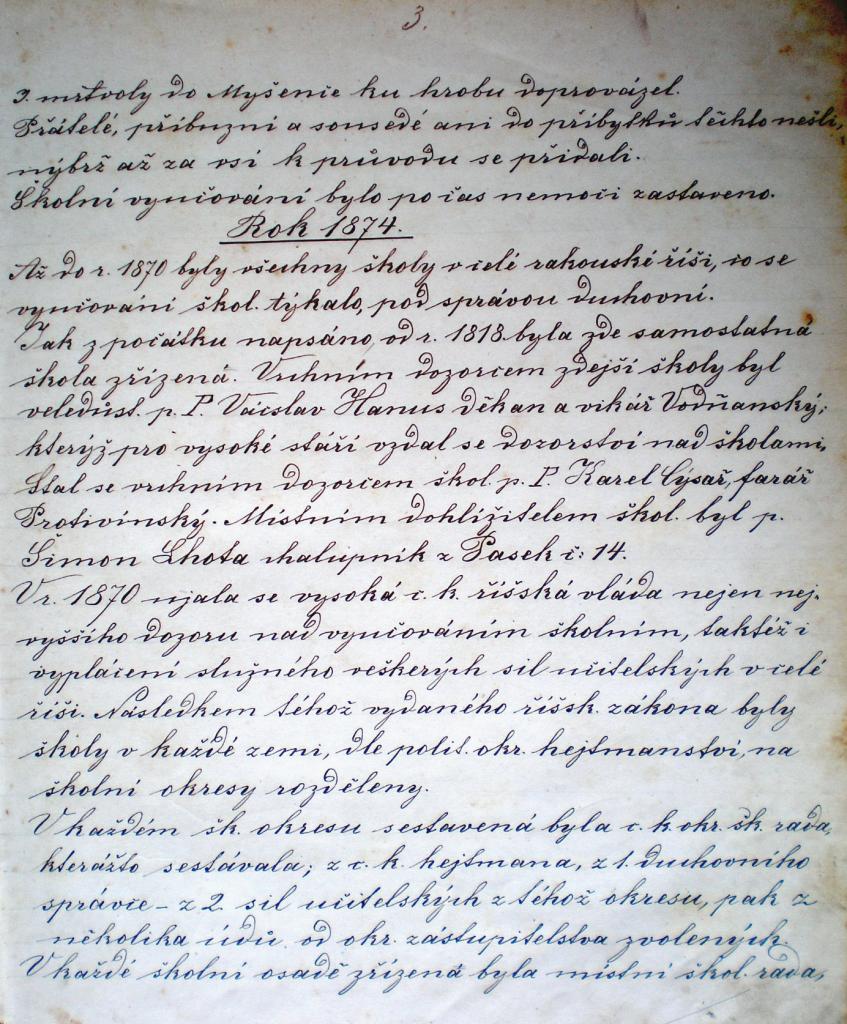 3.
9. mrtvoly do Myšenie ku hrobu doprovázel.
Přátelé, příbuzní a sousedé ani do příbytků těchto nešli,
nýbrž až za vsí k průvodu se přidali.
Školní vyučování bylo po čas nemoci zastaveno.
Rok 1874.
Až do r. 1870 byly všechny školy v celé rakouské říši, co se
vyučování škol. týkalo, pod správou duchovní.
Jak z počátku napsáno, od r. 1818 byla zde samostatná
škola zřízená. Vrchním dozorcem zdejší školy byl
veledůst. p. P. Vácslav Hanus děkan a vikář Vodňanský;
kterýž pro vysoké stáří vzdal se dozorství nad školami,
Stal se vrchním dozorcem škol. p. P. Karel Cýsař, farář
Protivínský. Místním dohlížitelem škol. byl p.
Šimon Lhota chalupník z Pasek č: 14.
V r. 1870 ujala se vysoká c. k. říšská vláda nejen nej-
vyššího dozoru nad vyučováním školním, taktéž i
vyplácení služného veškerých sil učitelských v celé
říši. Následkem téhož vydaného říšsk. zákona byly
školy v každé zemi, dle polit. okr. hejtmanství, na
školní okresy rozděleny.
V každém šk. okresu sestavená byla c. k. okr. šk. rada,
kterážto sestávala; z c. k. hejtmana, z 1. duchovního
správce - z 2 sil učitelských z téhož okresu, pak z
několika údů, od okr. zástupitelstva zvolených.
V každé školní osadě zřízená byla místní škol. rada,